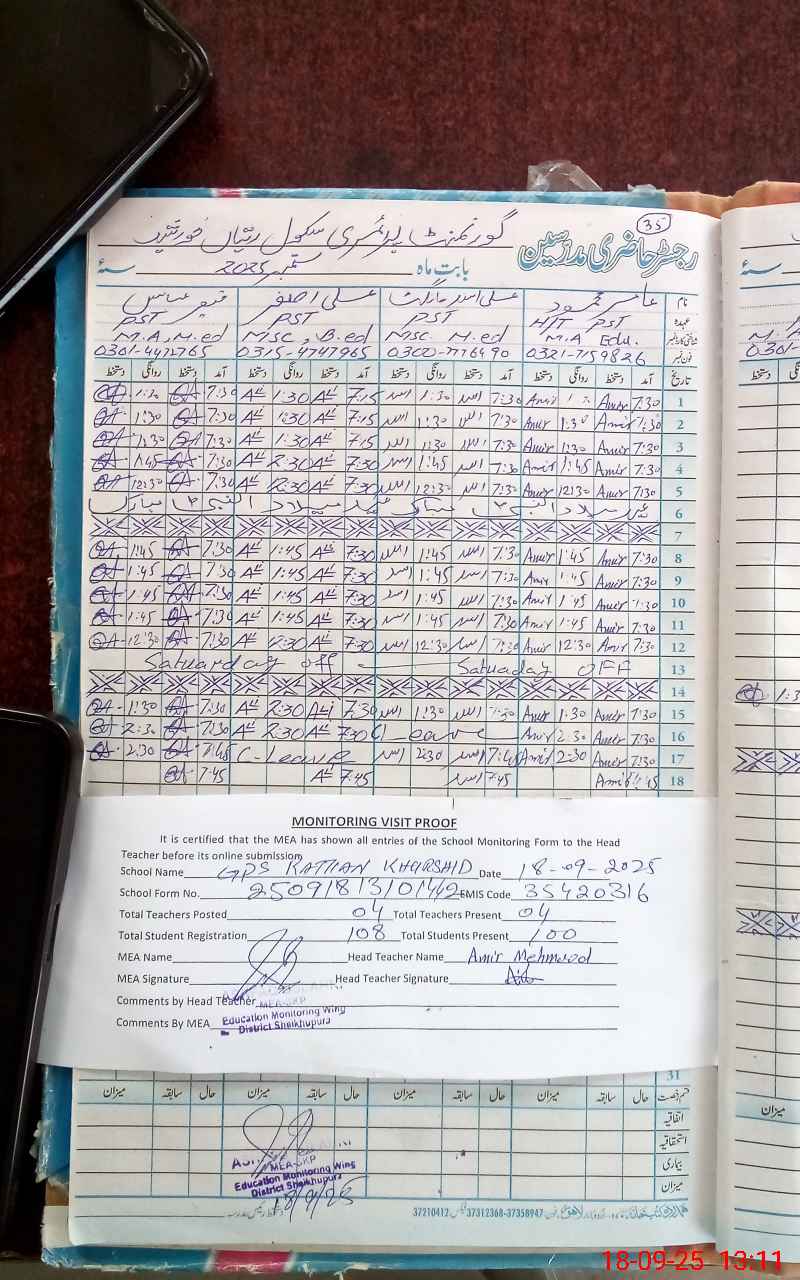 35
گورنمنٹ پرائمری سکول رتیاں خورشید
رجسٹر حاضری مدرسین
بابت ماہ ستمبر 2025 سنہ
نام عامر محمود علی اسد علی اصغر
عہدہ H/T PST PST PST PST
M.A Edu. MSC M.ed MSC, B.ed M.A, M.ed
فون نمبر 0321-7159826 0300-7776490 0315-4747965 0301-4472765
تاریخ آمد دستخط روانگی دستخط آمد دستخط روانگی دستخط آمد دستخط روانگی دستخط آمد دستخط روانگی دستخط
1 7:30 Amir Amir 7:30 اسد 1:30 اسد 7:15 Ali 1:30 Ali 7:30 QA 1:30 QA
2 7:30 Amir 1:30 Amir 7:30 اسد 1:30 اسد 7:15 Ali 1:30 Ali 7:30 QA 1:30 QA
3 7:30 Amir 1:30 Amir 7:30 اسد 1:30 اسد 7:15 Ali 1:30 Ali 7:30 QA 1:30 QA
4 7:30 Amir 1:45 Amir 7:30 اسد 1:45 اسد 7:30 Ali 2:30 Ali 7:30 QA 1:45 QA
5 7:30 Amir 12:30 Amir 7:30 اسد 12:30 اسد 7:30 Ali 12:30 Ali 7:30 QA 12:30 QA
6 میلاد النبی مبارک عید میلاد النبی مبارک
7
8 7:30 Amir 1:45 Amir 7:30 اسد 1:45 اسد 7:30 Ali 1:45 Ali 7:30 QA 1:45 QA
9 7:30 Amir 1:45 Amir 7:30 اسد 1:45 اسد 7:30 Ali 1:45 Ali 7:30 QA 1:45 QA
10 7:30 Amir 1:45 Amir 7:30 اسد 1:45 اسد 7:30 Ali 1:45 Ali 7:30 QA 1:45 QA
11 7:30 Amir 1:45 Amir 7:30 اسد 1:45 اسد 7:30 Ali 1:45 Ali 7:30 QA 1:45 QA
12 7:30 Amir 12:30 Amir 7:30 اسد 12:30 اسد 7:30 Ali 12:30 Ali 7:30 QA 12:30 QA
Satuarday off Satuaday OFF 13
14
15 7:30 Amir 1:30 Amir 7:30 اسد 1:30 اسد 7:30 Ali 2:30 Ali 7:30 QA 1:30 QA
16 7:30 Amir 2:30 Amir C leave 7:30 Ali 2:30 Ali 7:30 QA 2:30 QA
17 7:30 Amir 2:30 Amir 7:45 اسد 2:30 اسد C-Leave 7:45 QA 2:30 QA
18 7:45 Amir 7:45 اسد 7:45 Ali 7:45 QA
MONITORING VISIT PROOF
It is certified that the MEA has shown all entries of the School Monitoring Form to the Head
Teacher before its online submission
School Name GPS RATTIAN KHURSHID Date 18-09-2025
School Form No. 25091813101442 EMIS Code 35420316
Total Teachers Posted 04 Total Teachers Present 04
Total Student Registration 108 Total Students Present 100
MEA Name Head Teacher Name Amir Mehmood
MEA Signature Head Teacher Signature
Comments by Head Teacher
MEA-SKP
Comments By MEA Education Monitoring Wing
District Sheikhupura
31
قسم رخصت حال سابقہ میزان حال سابقہ میزان حال سابقہ میزان حال سابقہ میزان
اتفاقیہ
استحقاقیہ
بیماری
میزان
MEA-SKP
Education Monitoring Wing
District Sheikhupura
18/9/25
دستخط رئیس مدرسہ
37312368-37358947 37210412
18-09-25 13:11